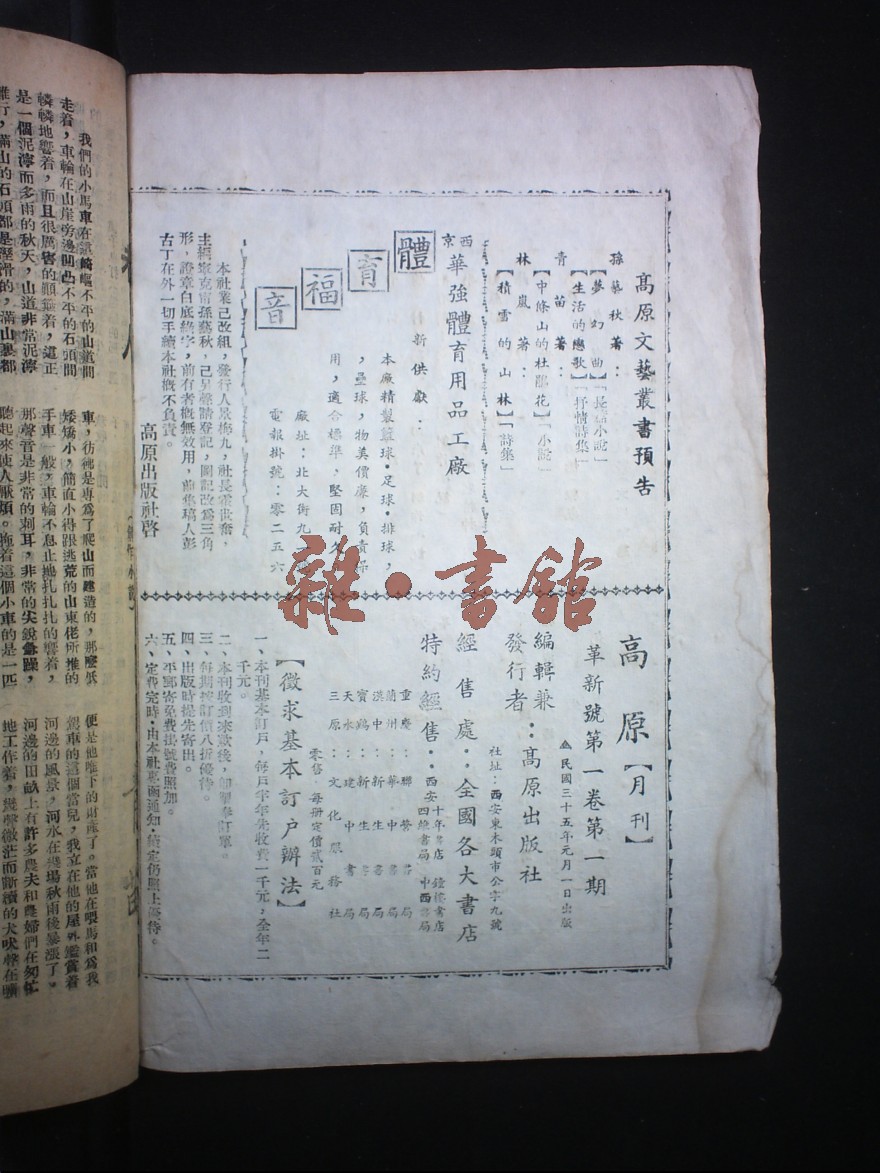 高原文藝叢書預告
孫藝秋著：
【夢幻曲】「長篇小說」
【生活的戀歌】「抒情詩集」
青苗著：
【中條山的杜鵑花】「小說」
林嵐著：
【積雪的山林】「詩集」
體育福音
西京華強體育用品工廠
新供獻：
本廠精製籃球·足球·排球，
，壘球，物美價廉，負責
用，適合標準，堅固耐久
廠址：北大街九
電報掛號：零二五六
本社業已改組，發行人景梅九，社長霍世奮，
主編寧克甫孫藝秋，己呈聲請登記，圖記改爲三角
形，證章白底綠字，前有者槪無效用，前集稿人彭
古丁在外一切手續本社槪不負責。
高原出版社啓
高原【月刊】
革新號第一卷第一期
民國三十五年元月一日出版
編輯兼發行者：高原出版社
社址：西安東木頭市公字九號
經售處：全國各大書店
特約經售：西安 十年書店 鐘樓書店
四維書局 中西書局
重慶：聯營書局
蘭州：華中書局
漢中：新生書局
寶鷄：新生書局
天水：建中書局
三原：文化服務社
零售·每册定價貳百元
【徵求基本訂户辦法】
一、本刊基本訂戶，每戶半年先收費一千元，全年二
千元。
二、本刊收到求款後，卽單奉訂單。
三、每期按訂價八折優待。
四、出版時提先寄出。
五、平郵寄免費掛號費照加。
六、定費完時·由本社專函通知·續定仍照上優待。
雜·書館
我們的小馬車在這崎嶇不平的山道間
走着，車輪在山崖旁邊凹凸不平的石頭間
轔轔地響着，而且很厲害的顚簸着，這正
是一個泥濘而多雨的秋天，山道非常泥濘
難行，滿山的石頭都是溼滑的，滿山
車，彷彿是專爲了爬山而建造的，那麼低
矮矯小，簡直小得跟逃荒的山東佬所推的
手車一般，車輪不息止地扎扎扎的響着，
那聲音是非常的刺耳，非常的尖銳
聽起來使人厭煩。拖着這個小車的是一匹
便是他唯下的財產了。當他在喂馬和爲我
架車的這個當兒，我立在他的屋外鑑賞着
河邊的風景，河水在幾場秋雨後暴漲了。
河邊的田畝上有許多農夫和農婦們在匆忙
地工作着，幾聲微茫而斷續的犬吠聲在曠